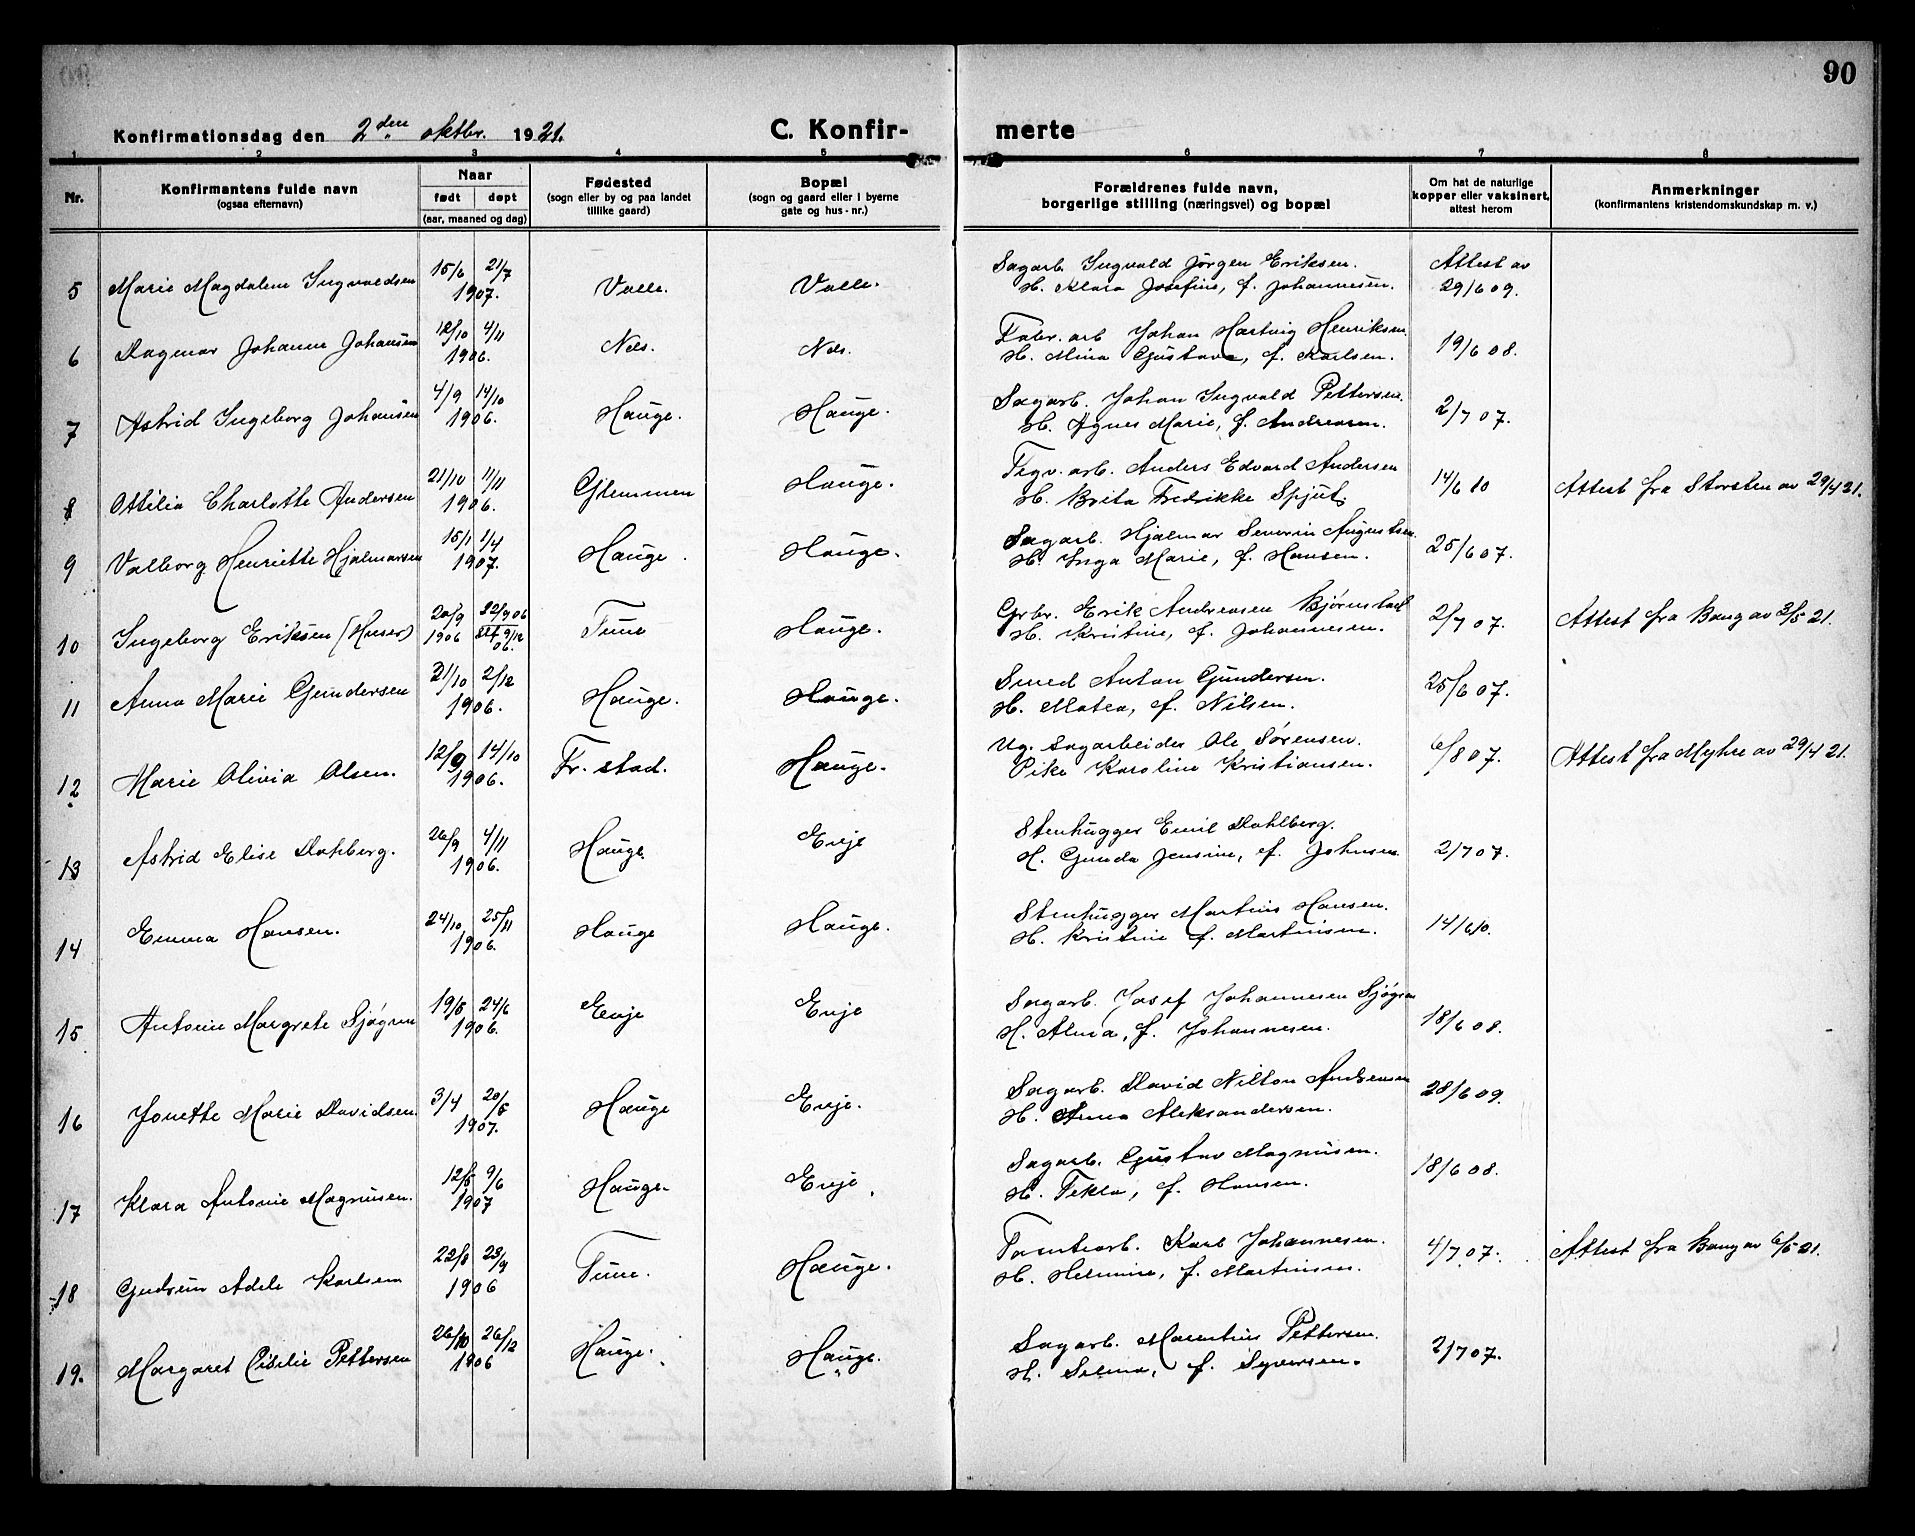 90
Konfirmationsdag den 2den oktbr. 1921.
C. Konfir-
merte
1 2 3 4 5 6 7 8
Nr.
Konfirmantens fulde navn
(ogsaa efternavn)
Naar
født døpt
(aar, maaned og dag)
Fødested
(sogn eller by og paa landet
tillike gaard)
Bopæl
(sogn og gaard eller i byerne
gate og hus-nr.)
Forældrenes fulde navn,
borgerlige stilling (næringsvei) og bopæl
Om hat de naturlige
kopper eller vaksinert,
attest herom
Anmerkninger
(konfirmantens kristendomskundskap m. v.)
5 Marie Magdalene Ingvaldsen 15/6 21/7 1907. Valle. Valle.
Sagarb. Ingvald Jørgen Eriksen.
H. Klara Josefine, f. Johannesen.
Attest av
29/6 09.
6 Dagmar Johanne Johansen 12/10 4/11 1906. Nes. Nes.
Fabr. arb Johan Hartvig Henriksen
H. Mina Gustava, f. Karlsen.
19/6 08.
7 Astrid Ingeborg Johansen 4/9 14/10 1906. Hauge. Hauge.
Sagarb. Johan Ingvald Pettersen.
H. Agnes Marie, f. Andreasen.
2/7 07.
8 Ottilia Charlotte Andersen 21/10 11/11 1906. Glemmen Hauge.
Tegv. arb. Anders Edvard Andersen
H. Brita Fredrikke Spjut.
14/6 10
Attest fra Storsten av 29/4 21.
9 Valborg Henriette Hjalmarsen 15/1 1/4 1907. Hauge. Hauge.
Sagarb. Hjalmar Severin Augustsen.
H. Inga Marie, f. Hansen.
25/6 07.
10 Ingeborg Eriksen (Huser) 20/9 1906 22/9 06 Stf. 9/12 06. Tune Hauge.
Grbr. Erik Andreasen Bjørnstad
H. Kristine, f. Johannesen.
2/7 07.
Attest fra Baug av 3/5 21.
11 Anna Marie Gundersen 31/10 2/12 1906. Hauge. Hauge.
Smed Anton Gundersen.
H. Matea, f. Nilsen.
25/6 07.
12 Marie Olivia Olsen. 12/9 14/10 1906. Fr. stad. Hauge.
Ug. Sagarbeider Ole Sørensen.
Pike Karoline Kristiansen.
6/8 07.
Attest fra Myhre av 29/4 21.
13 Astrid Elise Dahberg. 26/9 4/11 1906. Hauge. Evje
Stenhugger Emil Dahlberg.
H. Gunda Jensine, f. Johnsen.
2/7 07.
14 Emma Hansen. 24/10 25/11 1906. Hauge Hauge.
Stenhugger Martius Hansen.
H. Kristine f. Martinsen.
14/6 10.
15 Antonie Margrete Sjøgren 19/5 24/6 1906. Evje Evje
Sagarb. Josef Johannesen Sjøgren
H. Alma, f. Johannesen.
18/6 08.
16 Jonette Marie Davidsen. 3/4 20/5 1907. Hauge Evje.
Sagarb. David Nilton Andersen
H. Anna Aleksandersen.
28/6 09.
17 Klara Antonie Magnusen. 12/5 9/6 1907 Hauge. Evje
Sagarb. Gustav Magnusen.
H. Tekla, f. Hansen.
18/6 08.
18 Gudrun Adele Karlsen 22/8 23/9 1906 Tune. Hauge.
Tomtearb. Karl Johannesen.
H. Helmine, f. Martinsen.
4/7 07.
Attest fra Baug av 6/5 21.
19. Margaret Cisilie Pettersen 26/10 26/12 1906 Hauge. Hauge.
Sagarb. Marentius Pettersen.
H. Selma, f. Syversen.
2/7 07.